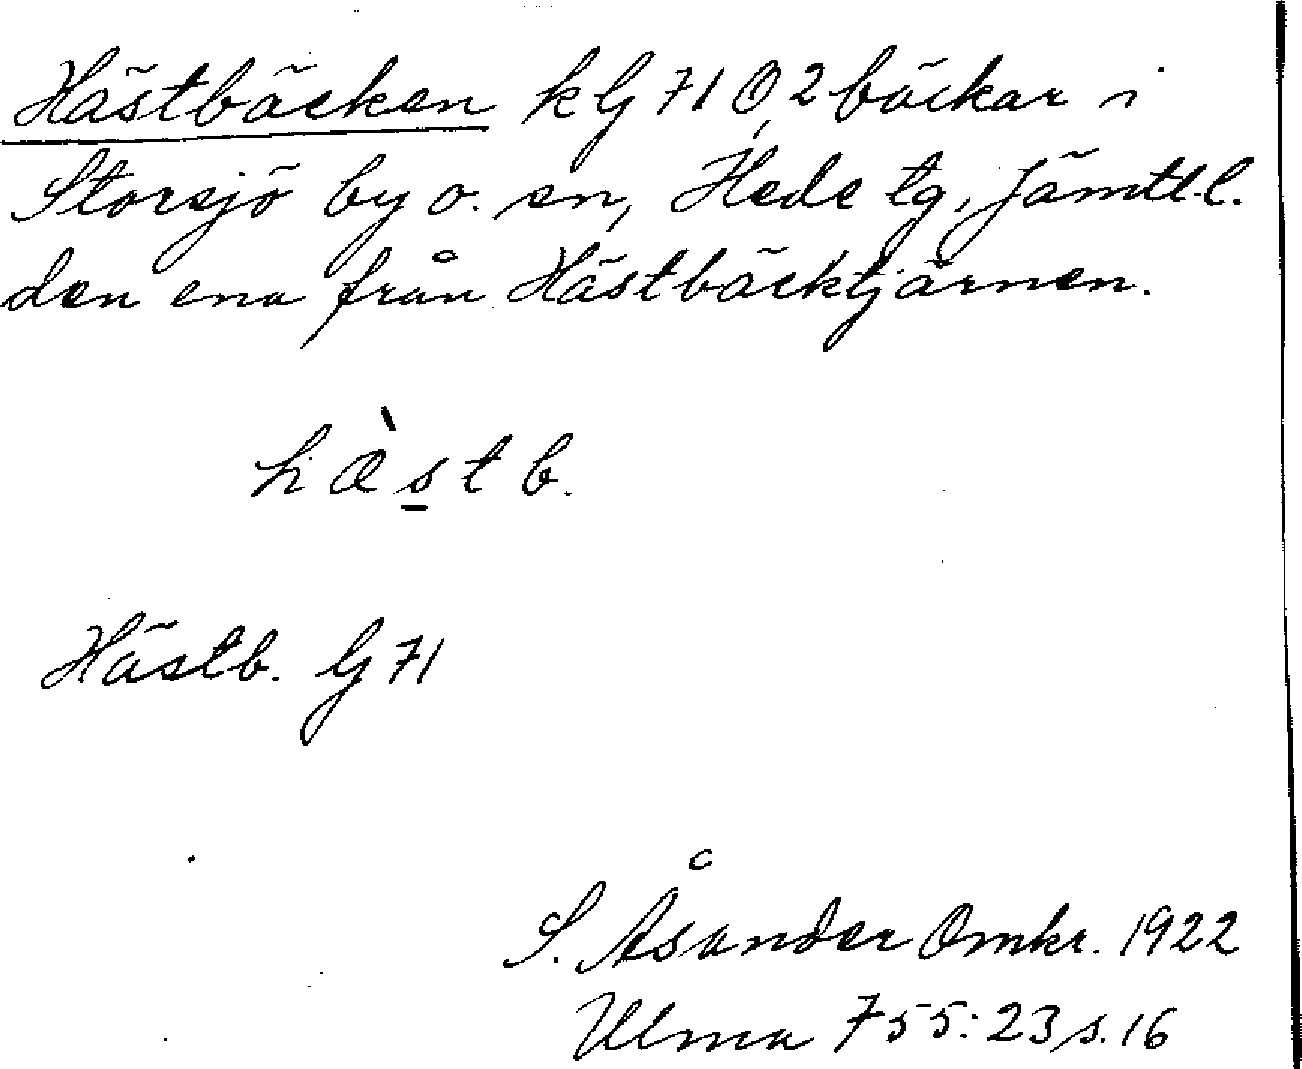 Hästbäcken kG 71 Ö, 2 bäckar i
Storsjö by o. sn, Hede tg, Jämtl.
den ena från Hästbäcktjärnen.
hæ̀stb.
Hästb. G 71
S. Åsander Omkr. 1922
Ulma 755:23 s. 16